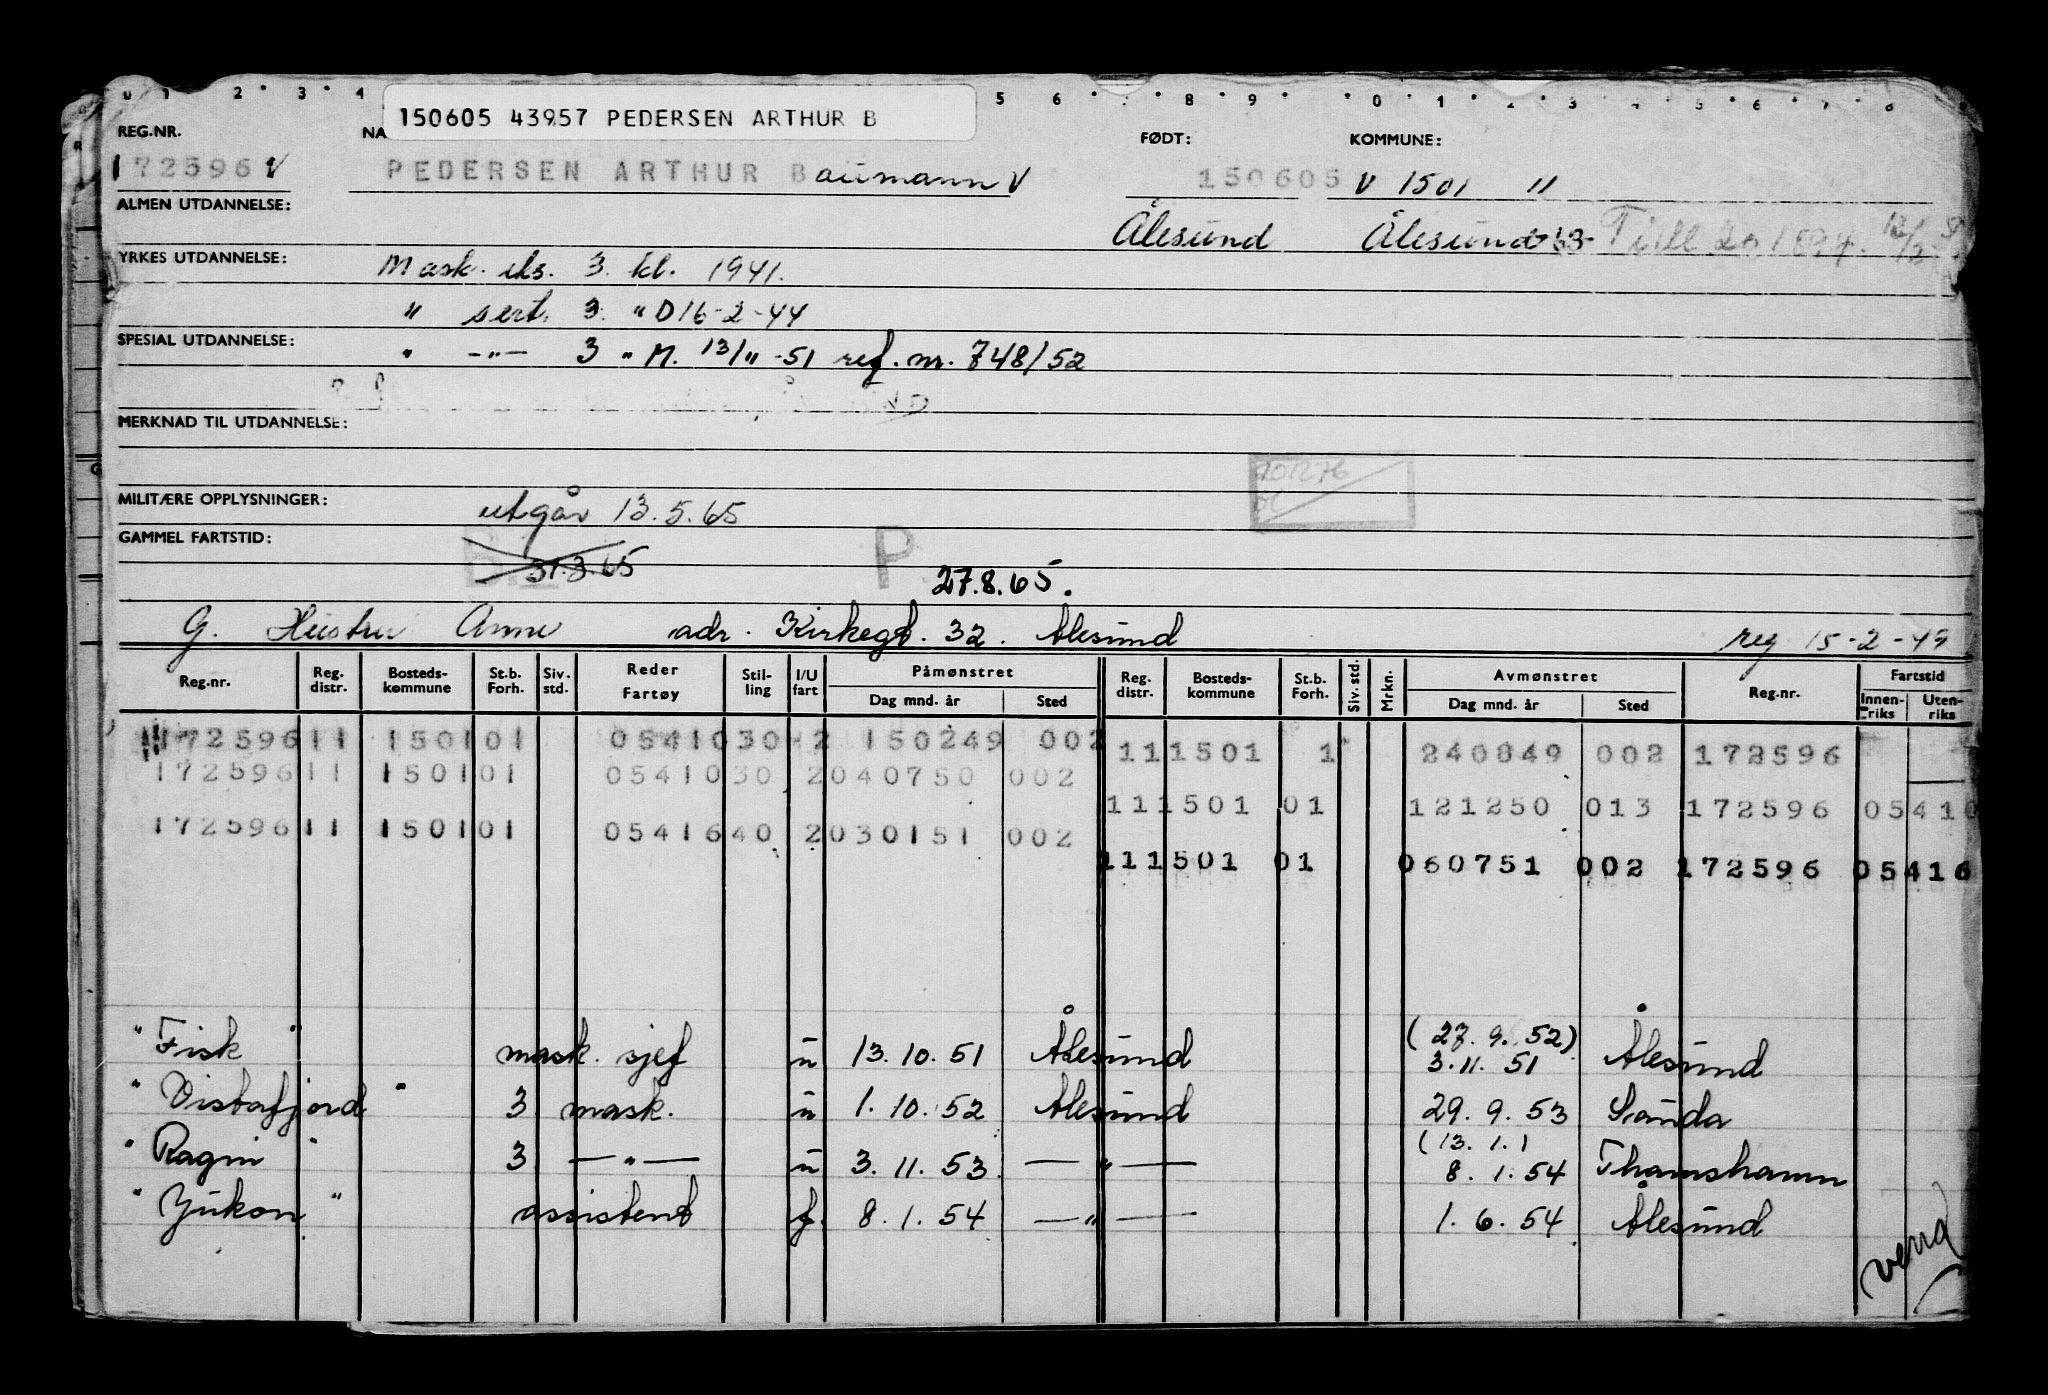 150605 43957 PEDERSEN ARTHUR B
REG.NR. NA FØDT: KOMMUNE:
172596 V PEDERSEN ARTHUR Baumann V 150605 V 1501 "
ALMEN UTDANNELSE: Ålesund Ålesund
YRKES UTDANNELSE: Mask. eks. 3. kl. 1941.
" sert. 3. " D 16-2-44
SPESIAL UTDANNELSE: " -"- 3 " M. 13/11-51 ref. nr. 748/52
MERKNAD TIL UTDANNELSE:
MILITÆRE OPPLYSNINGER: utgår 13.5.65
GAMMEL FARTSTID: 31.3.65 P 27.8.65.
G. Hustru Anne adr. Kirkegt. 32. Ålesund reg 15-2-49
Reg.nr. Reg. distr. Bosteds-kommune St.b. Forh. Siv. std. Reder Fartøy Stil-ling I/U fart Påmønstret Dag mnd. år Sted Reg. distr. Bosteds-kommune St.b. Forh. Siv. std. Mrkn. Avmønstret Dag mnd. år Sted Reg.nr. Fartstid Innen-riks Uten-riks
172596 11 1501 01 05410 30 2 150249 002 11 1501 1 240849 002 172596
172596 11 1501 01 05410 30 2 040750 002
11 1501 01 121250 013 172596 05410
172596 11 1501 01 05416 40 2 030151 002
11 1501 01 060751 002 172596 05416
"Fisk" mask. sjef u 13.10.51 Ålesund (27.9.52) 3.11.51 Ålesund
"Vistafjord" 3 mask. u 1.10.52 Ålesund 29.9.53 Sauda
"Ragni" 3 —"— u 3.11.53. —"— (13.1.) 8.1.54 Thamshamn
"Yukon" assistent f. 8.1.54 —"— 1.6.54 Ålesund
vend